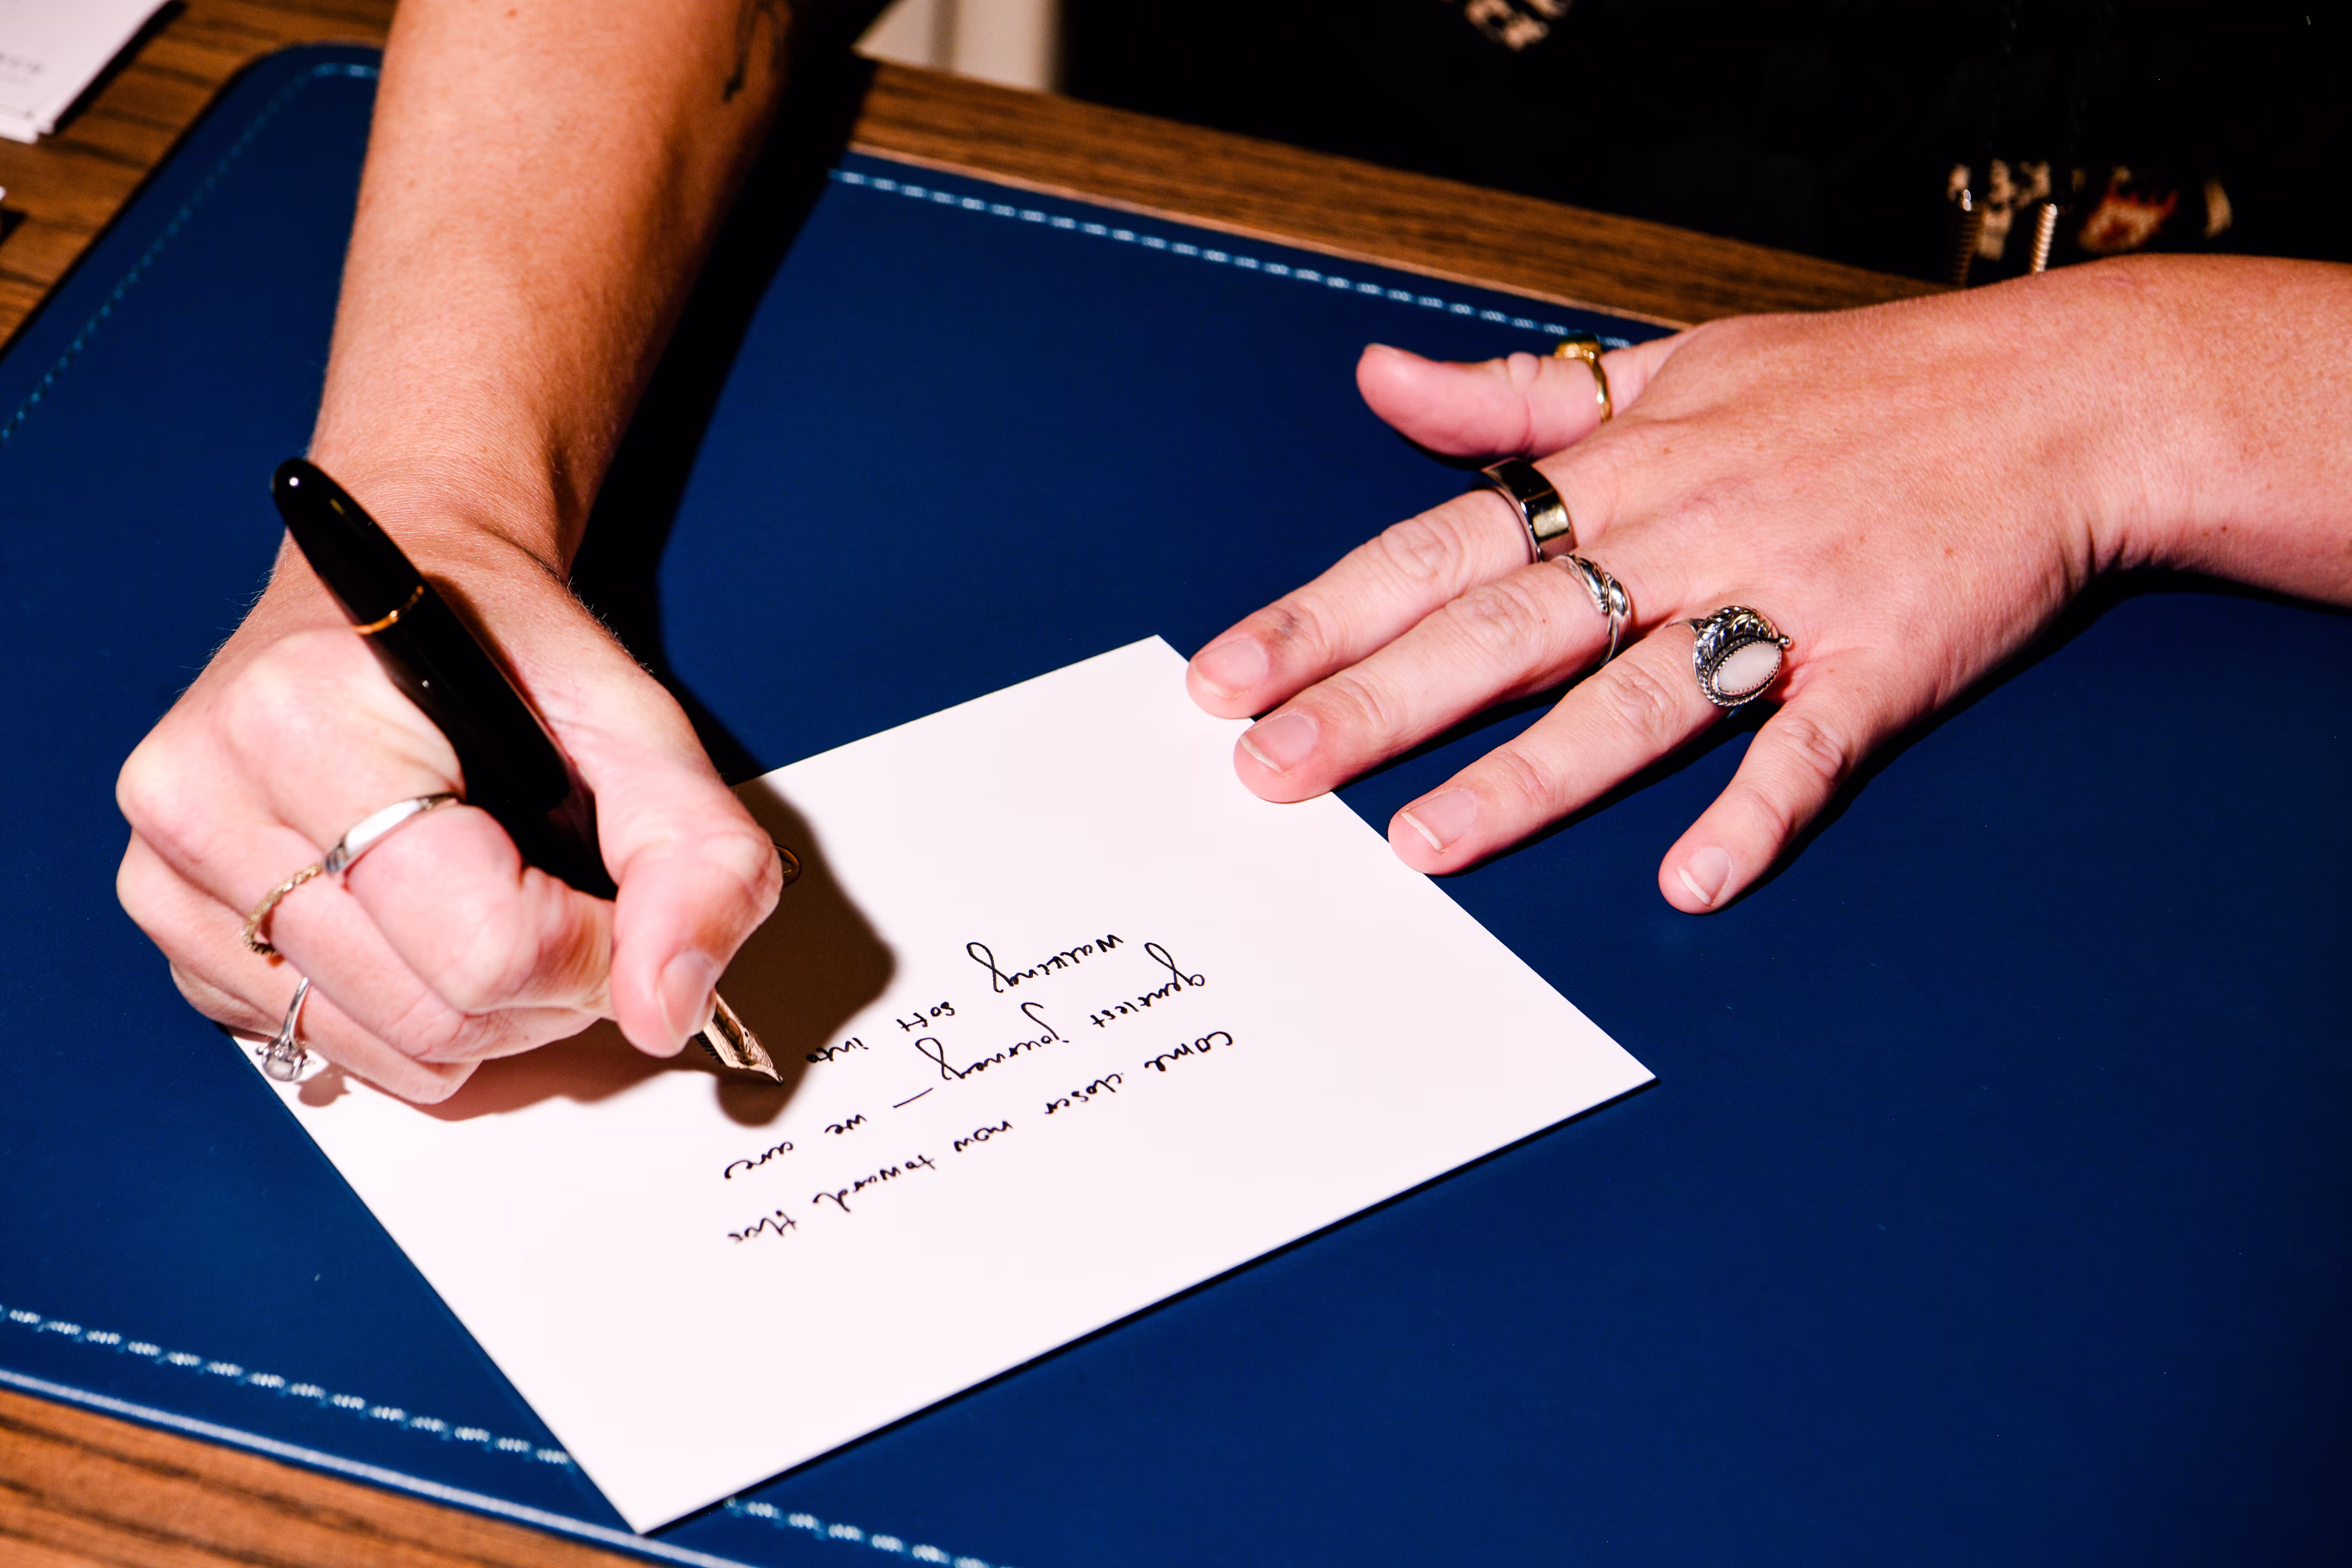 come closer now toward this
gentlest journey — we are
walking soft into